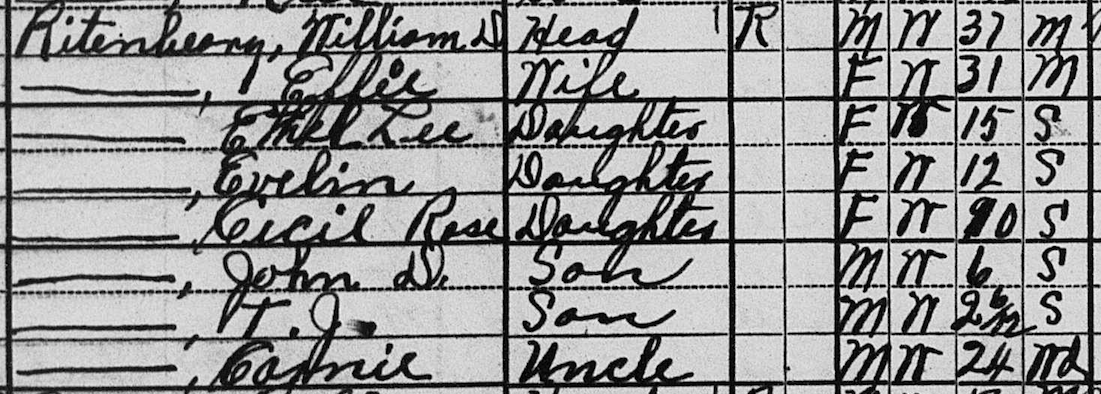 Ritenberry, William D Head R M W 37 M
———, Effie Wife F W 31 M
———, Ethel Lee Daughter F W 15 S
———, Evelin Daughter F W 12 S
———, Cicil Rose Daughter F W 10 S
———, John D. Son M W 6 S
———, T. J. Son M W 2 6/12 S
———, Connie Uncle M W 24 Wd